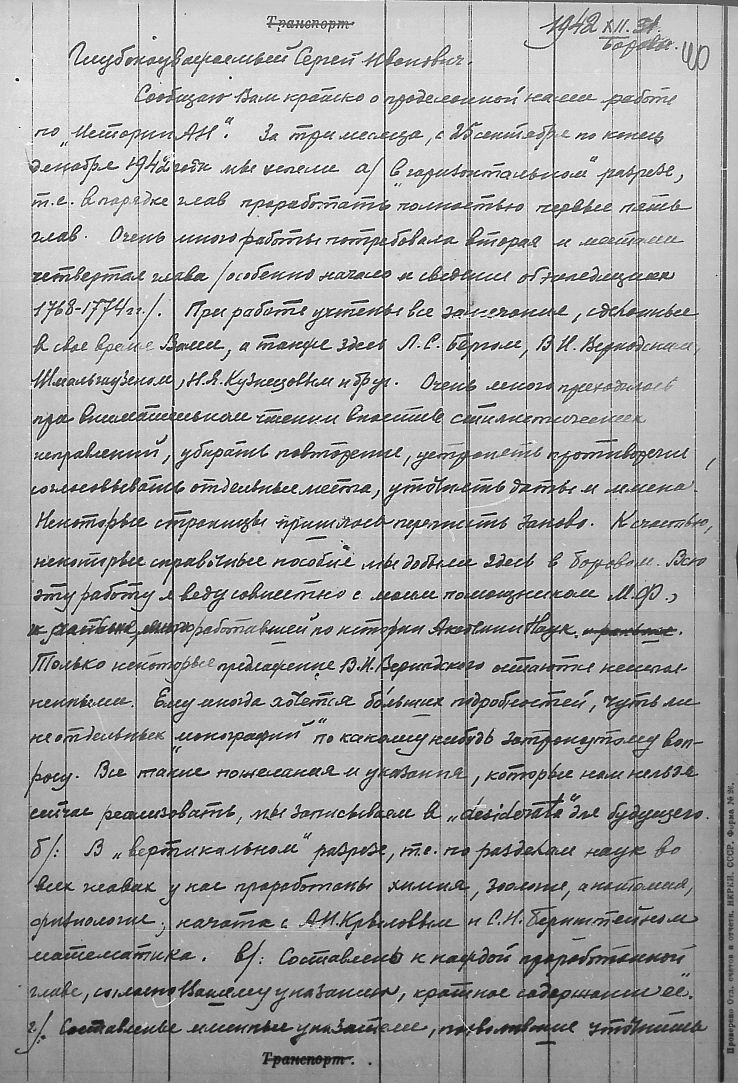 Транспорт
1942 XII. 31.
Боровое
40
Глубокоуважаемый Сергей Иванович.
Сообщаю Вам кратко о проделанной нами работе
по „Истории АН“. За три месяца, с 25 сентября по конец
декабря 1942 года мы успели а/ в „горизонтальном“ разрезе,
т.е. в порядке глав проработать полностью первые пять
глав. Очень много работы потребовала вторая и местами
четвертая глава /особенно начало и сведения об экспедициях
1768-1774 гг./. При работе учтены все замечания, сделанные
в свое время Вами, а также здесь Л.С. Бергом, В.И. Вернадским,
Шмальгаузеном, Н.Я. Кузнецовым и друг. Очень много приходилось
при внимательном чтении вносить стилистических
исправлений, убирать повторения, устранять противоречия,
согласовывать отдельные места, уточнять даты и имена.
Некоторые страницы пришлось переписать заново. К счастью,
некоторые справочные пособия мы добыли здесь в Боровом. Всю
эту работу я веду совместно с моим помощником М.Ф.,
работавшей по истории Академии Наук.
Только некоторые предложения В.И. Вернадского остаются неиспол-
ненными. Ему иногда хочется бо́льших подробностей, чуть ли
не отдельных „монографий“ по какому нибудь затронутому воп-
росу. Все такие пожелания и указания, которые нам нельзя
сейчас реализовать, мы записываем в „desiderata“ для будущего.
б/: В „вертикальном“ разрезе, т.е. по разделам наук во
всех главах у нас проработаны химия, зоология, анатомия,
физиология; начата с А.Н. Крыловым и С.Н. Бернштейном
математика. в/: Составлены к каждой проработанной
главе, согласно Вашему указанию, краткое содержание ее.
г/: Составленые именные указатели, позволившие уточнить
Транспорт.
Проверено Отд. счетов и отчетн. НКРКИ. СССР. Форма № 26.